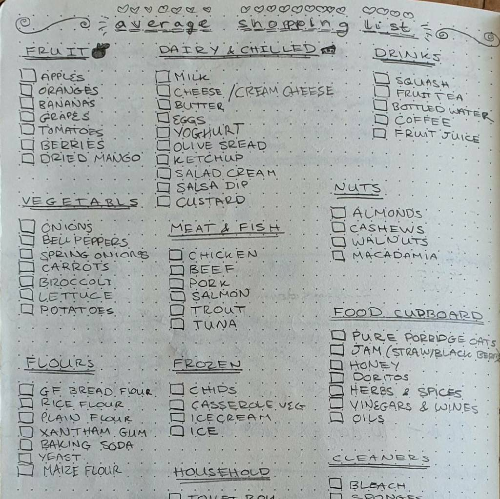 average shopping list
FRUIT
APPLES
ORANGES
BANANAS
GRAPES
TOMATOES
BERRIES
DRIED MANGO
VEGETABLS
ONIONS
BELL PEPPERS
SPRING ONIONS
CARROTS
BROCCOLI
LETTUCE
POTATOES
FLOURS
GF BREAD FLOUR
RICE FLOUR
PLAIN FLOUR
XANTHAM GUM
BAKING SODA
YEAST
MAIZE FLOUR
DAIRY & CHILLED
MILK
CHEESE / CREAM CHEESE
BUTTER
EGGS
YOGHURT
OLIVE SREAD
KETCHUP
SALAD CREAM
SALSA DIP
CUSTARD
MEAT & FISH
CHICKEN
BEEF
PORK
SALMON
TROUT
TUNA
FROZEN
CHIPS
CASSEROLE VEG
ICECREAM
ICE
HOUSEHOLD
TOILET ROLL
DRINKS
SQUASH
FRUIT TEA
BOTTLED WATER
COFFEE
FRUIT JUICE
NUTS
ALMONDS
CASHEWS
WALNUTS
MACADAMIA
FOOD CUPBOARD
PURE PORRIDGE OATS
JAM (STRAW/BLACK BERR
HONEY
DORITOS
HERBS & SPICES
VINEGARS & WINES
OILS
CLEANERS
BLEACH
SPONGES